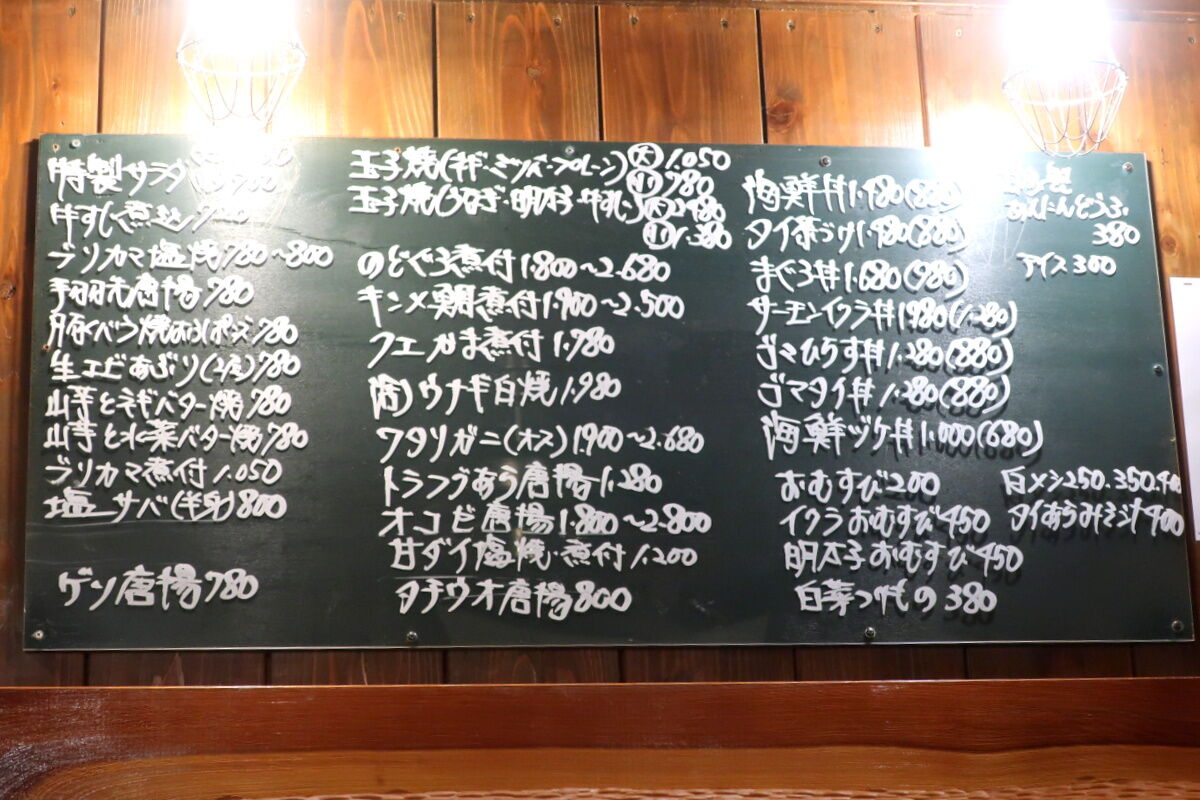 特製サラダ
牛すじ煮込み
ブリカマ塩焼780〜800
手羽先唐揚780
豚バラ焼おろしポン酢780
生エビあぶり(2尾)780
山芋とネギバター焼780
山芋と水菜バター焼780
ブリカマ煮付1.050
塩サバ(半身)800
ゲソ唐揚780
玉子焼(ネギ・ミツバ・プレーン)大1.050
小780
玉子焼(うなぎ・明太子・牛すじ)大2.480
小1.380
のどぐろ煮付1.800〜2.680
キンメ鯛煮付1.900〜2.500
クエかま煮付1.780
ウナギ白焼1.980
ワタリガニ(オス)1.900〜2.680
トラフグあら唐揚1.280
オコゼ唐揚1.800〜2.800
甘ダイ塩焼・煮付1.200
タチウオ唐揚800
海鮮丼1.480(880)
タイ茶づけ1.480(880)
まぐろ丼1.680(980)
サーモンイクラ丼1.980(1.280)
ゴマひらす丼1.280(880)
ゴマタイ丼1.280(880)
海鮮ヅケ丼1.000(680)
おむすび200
イクラおむすび450
明太子おむすび450
白菜つけもの380
製
あんにんどうふ
380
アイス300
白メシ250.350.400
タイあらみそ汁400